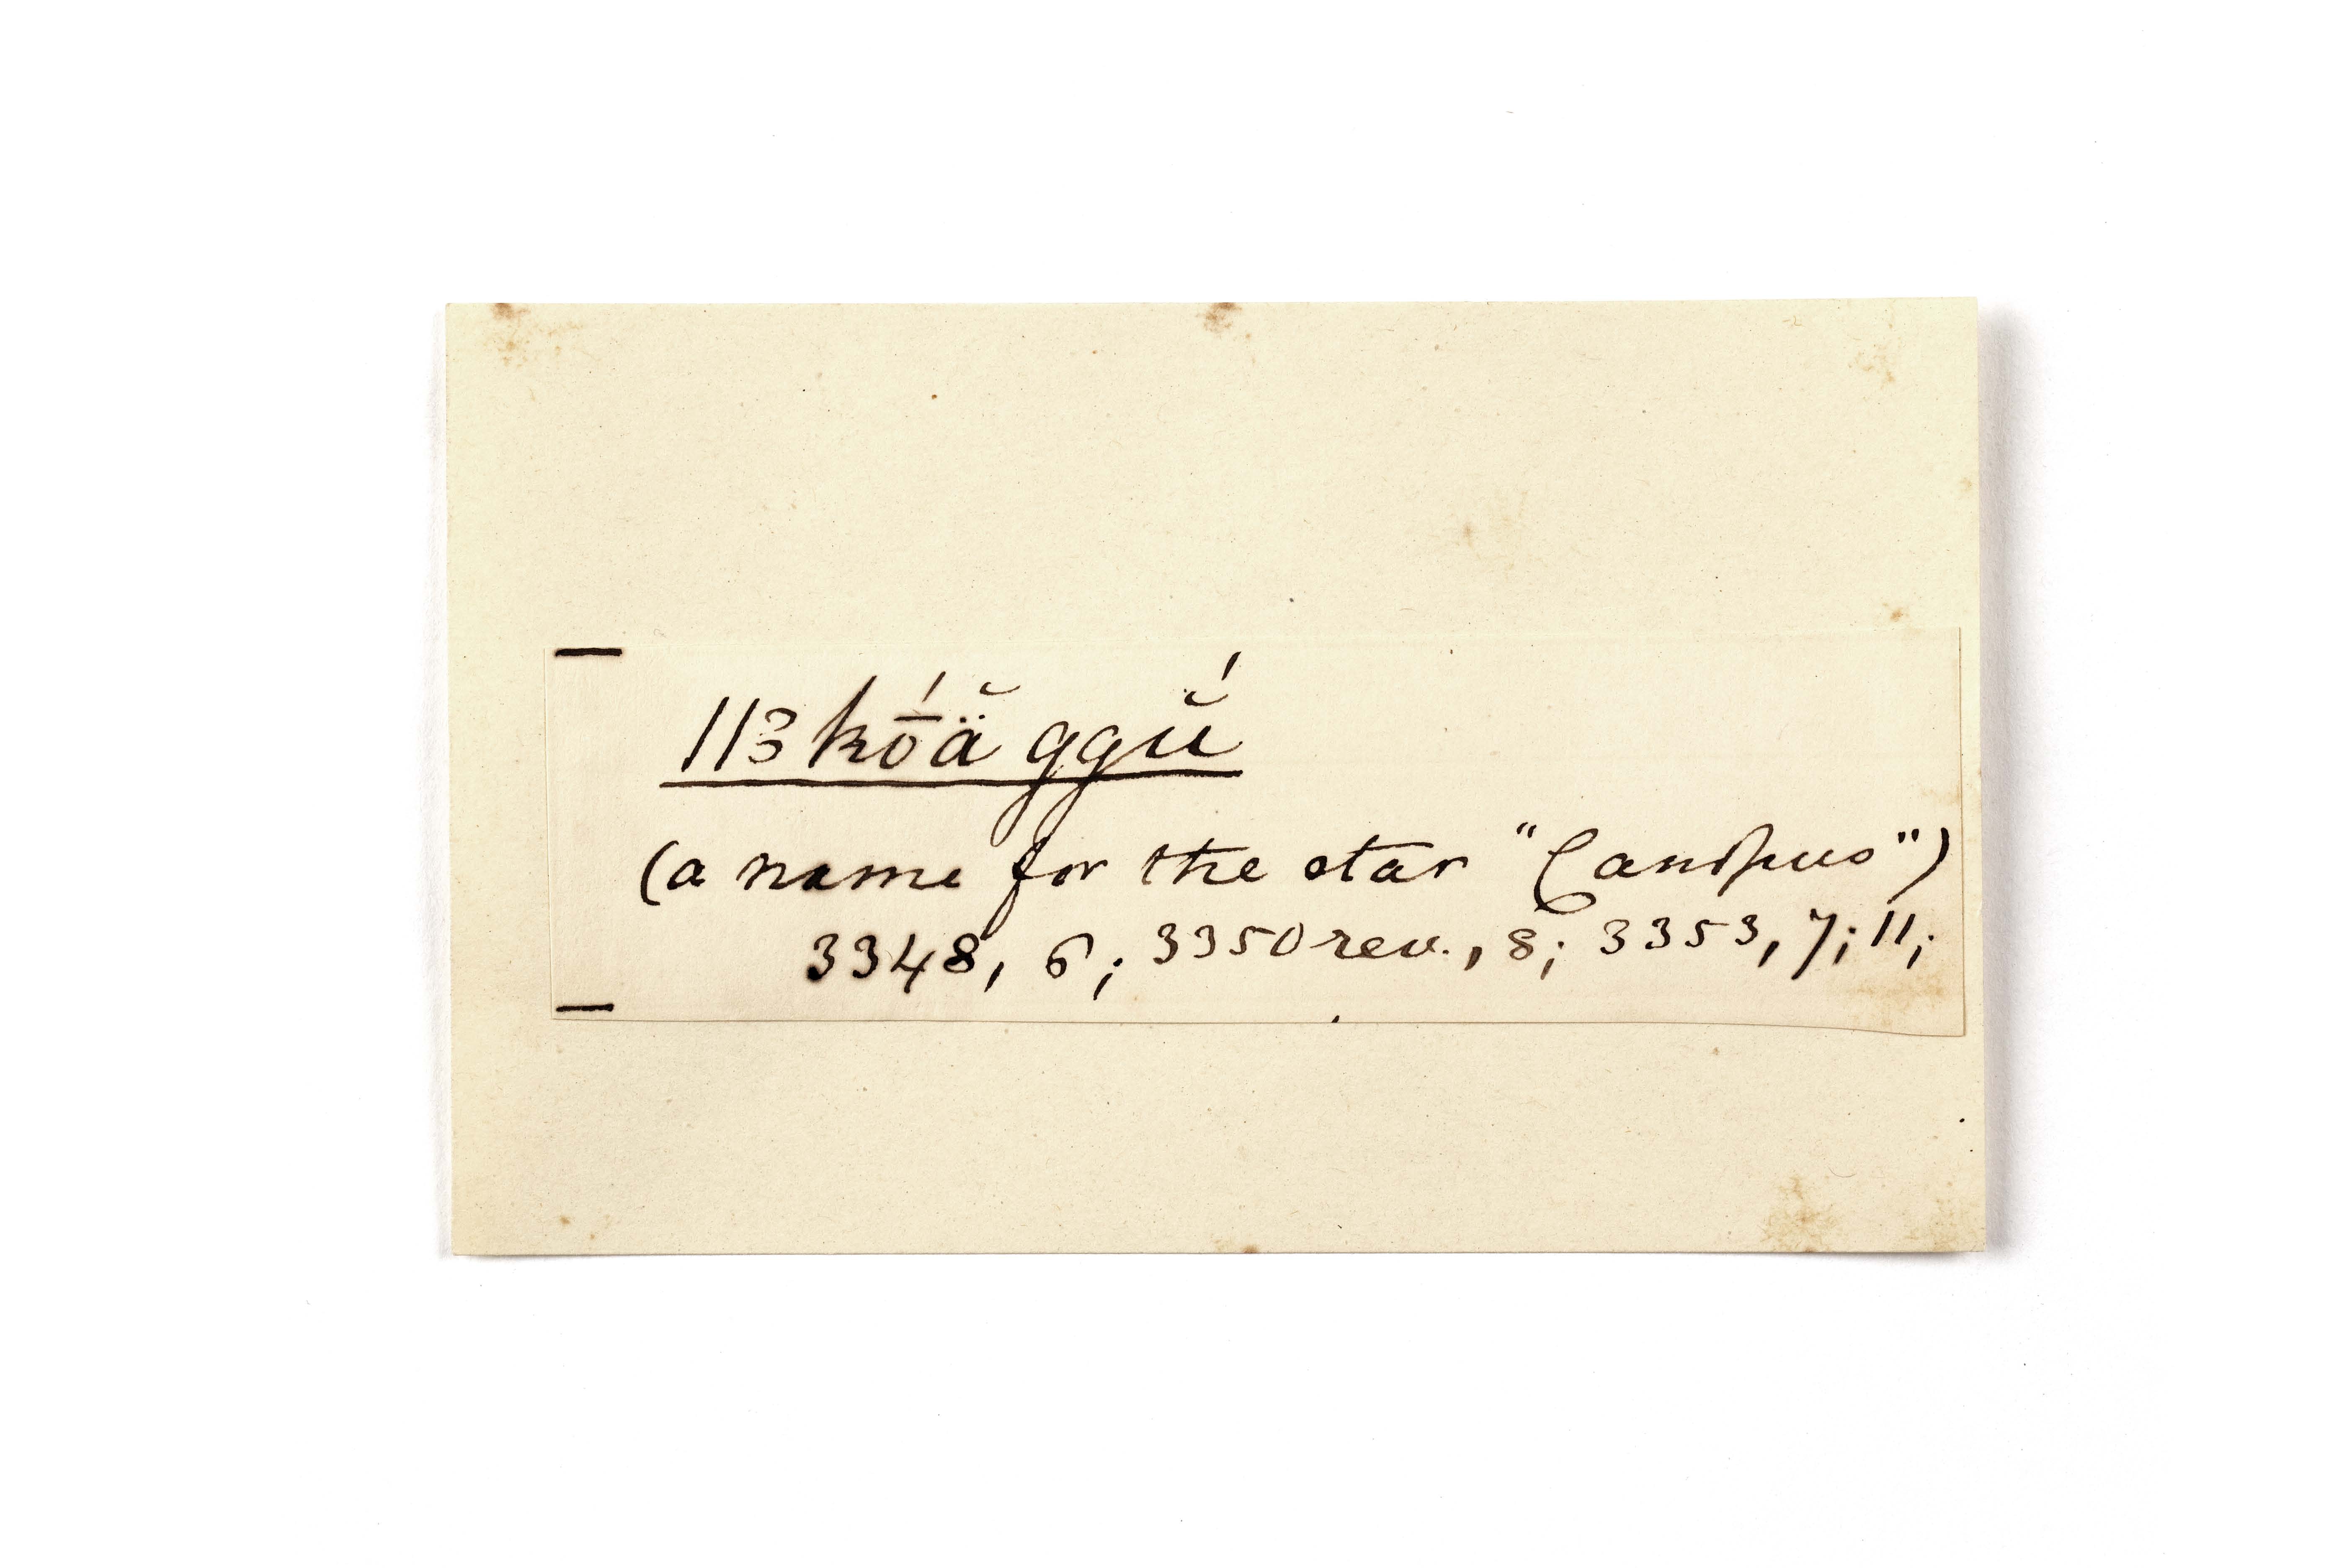 ||3kṓä̆ ggŭ́
(a name for the star "Canopus")
3348, 6; 3350 rev., 8; 3353, 7; 11;